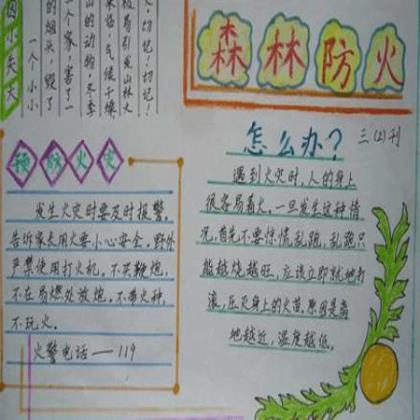 森林防火
三(2)刊
因小失大
一个小小
的烟头,毁了
一个家,害了一
山的动物。冬季
来临,气候干燥
极易引发山林火
切记!切记!
预防火灾
发生火灾时要及时报警,
告诉家长用火要小心安全。野外
严禁使用打火机。不买鞭炮,
不在易燃处放炮。不带火种,
不玩火。
火警电话——119
怎么办?
遇到火灾时,人的身上
很容易着火。一旦发生这种情
况,首先不要惊慌乱跑,乱跑只
能越烧越旺,应该立即就地打
滚,压灭身上的火苗。原因是离
地越近,温度越低。